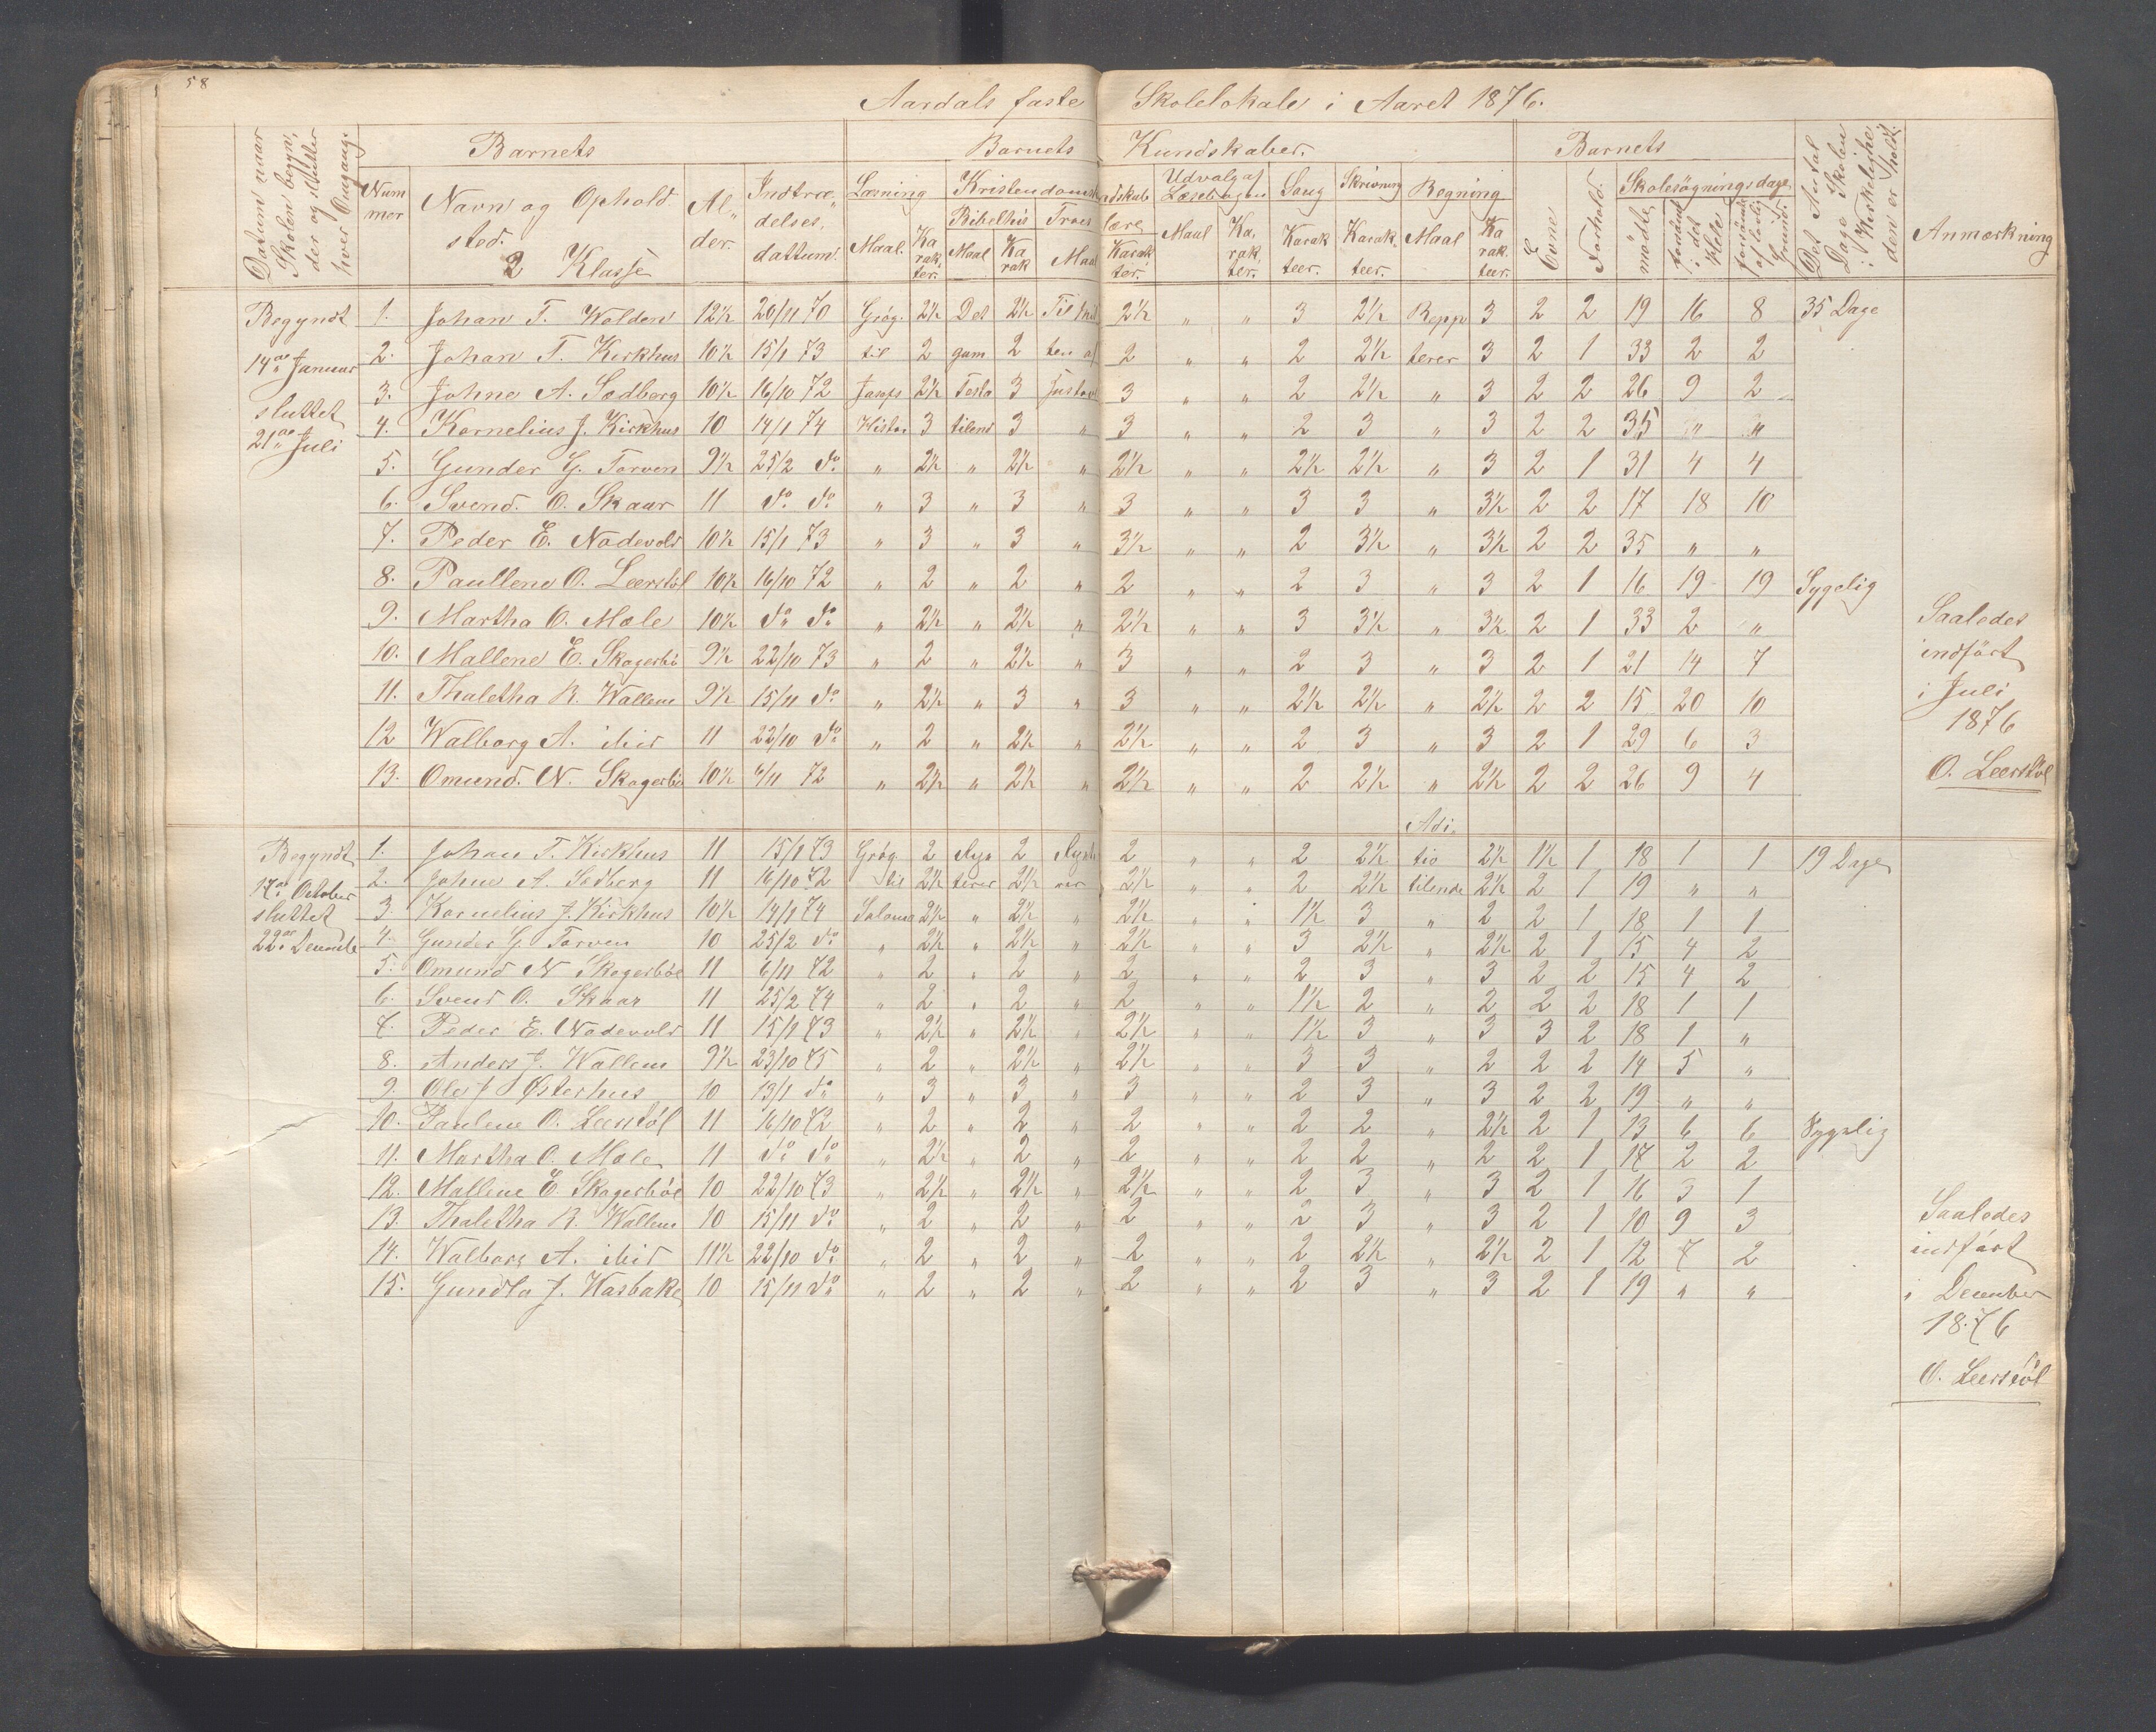 58
Aardals faste Skolelokale i Aaret 1876.
Datum naar Skolen begyn, der og slutter hver Omgang.
Barnets
Barnets Kundskaber.
Barnets
Det Antal Dage Skolen i Virkeligheden er holdt.
Anmærkning
Num mer
Navn og Ophold sted.
2 Klasse
Al, der.
Indtræ, delses, dattum.
Læsning
Maal.
Ka rak, ter.
Kristendomskundskab
Bibelhis
Maal
Ka rak
Troes lære
Maal
Karak, ter.
Udvalg af Læsebogen
Maal
Ka, rak, ter.
Sang
Karak teer.
Skrivning
Karak, teer.
Regning
Maal
Ka rak. teer.
Evne
Forhold.
Skolesögningsdage.
mödte
forsömt i det Hele
forsömt af lovlig Grund.
Begyndt 14de Januar sluttet 21de Juli
1. Johan T. Wolden 12½ 20/11 70 Grög. 2½ Det 2½ Til 2½ " " 3 2½ Reppe 3 2 2 19 16 8 35 Dage
2. Johan T. Kirkhus 10½ 15/1 73 til 2 gam 2 ten af 2 " " 2 2½ terer 3 2 1 33 2 2
3. Johne A. Sedberg 10½ 16/10 72 Josefs 2½ Testa 3 3 " " 2 2½ " 3 2 2 26 9 2
4. Kornelius J. Kirkhus 10 14/1 74 Histo. 3 tilend 3 " 3 " " 2 3 " 3 2 2 35 " "
5. Gunder G. Torven 9½ 25/2 do " 2½ " 2½ " 2½ " " 2½ 2½ " 3 2 1 31 4 4
6. Svend. O. Skaar 11 do do " 3 " 3 " 3 " " 3 3 " 3½ 2 2 17 18 10
7. Peder E. Nodevold 10½ 15/1 73 " 3 " 3 " 3½ " " 2 3½ " 3½ 2 2 35 " "
8. Paullene O. Leerstöl 10½ 16/10 72 " 2 " 2 " 2 " " 2 3 " 3 2 1 16 19 19 Sygelig
9. Martha O. Mæle 10½ do do " 2½ " 2½ " 2½ " " 3 3½ " 3½ 2 1 33 2 "
10. Mallene E. Skogerbö 9½ 22/10 73 " 2 " 2½ " 3 " " 2 3 " 3 2 1 21 14 7
11. Thaletha R. Wallem 9½ 15/11 do " 2½ " 3 " 3 " " 2½ 2½ " 2½ 2 2 15 20 10
12 Walborg A. ibid 11 22/10 do " 2 " 2½ " 2½ " " 2 3 " 3 2 1 29 6 3
13. Omund. N. Skogerbö 10½ 6/11 72 " 2½ " 2½ " 2½ " " 2 2½ " 2½ 2 2 26 9 4
Saaledes
indfört
i Juli
1876
O. Leerstöl
Begyndt 17de October sluttet 22de Decembe
Adi
1. Johan T. Kirkhus 11 15/1 73 Grög. 2 2 2 " " 2 2½ tio 2½ 1½ 1 18 1 1 19 Dage
2. Johne A. Sedberg 11 16/10 72 til 2½ terer 2½ 2½ " " 2 2½ tilende 2½ 2 1 19 " "
3. Kornelius J. Kirkhus 10½ 14/1 74 Salomo 2½ " 2½ " 2½ " " 1½ 3 " 2 2 1 18 1 1
4. Gunder G. Torven 10 25/2 do " 2½ " 2½ " 2½ " " 3 2½ " 2½ 2 1 15 4 2
5. Omund N Skogerböe 11 6/11 72 " 2 " 2 " 2 " " 2 3 " 3 2 2 15 4 2
6. Svend O. Skaar 11 25/2 74 " 2 " 2 " 2 " " 1½ 2 " 2 2 2 18 1 1
7. Peder E. Nodevold 11 15/1 73 " 2½ " 2½ " 2½ " " 1½ 3 " 3 3 2 18 1 "
8. Anders J. Wallem 9½ 23/10 75 " 2 " 2½ " 2½ " " 3 3 " 2 2 2 14 5 "
9. Ole J Østerhus 10 13/1 do " 3 " 3 " 3 " " 2 3 " 3 2 2 19 " "
10. Paulene O. Leerstöl 11 16/10 72 " 2 " 2 " 2 " " 2 2 " 2½ 2 1 13 6 6 Sygelig
11. Martha O. Mæle 11 do do " 2½ " 2 " 2 " " 2 2 " 2 2 1 17 2 2
12. Mallene E. Skogerböe 10 22/10 73 " 2½ " 2½ " 2½ " " 2 3 " 3 2 1 16 3 1
13. Thaletha R. Wallem 10 15/11 do " 2 " 2 " 2 " " 2 3 " 3 2 1 10 9 3
14. Walborg A. ibid 11½ 22/10 do " 2 " 2 " 2 " " 2 2½ " 2½ 2 1 12 7 2
15. Gundla J. Wasbakke 10 15/11 do " 2 " 2 " 2 " " 2 3 " 3 2 1 19 " "
Saaledes
indfört
i December
1876
O. Leerstöl